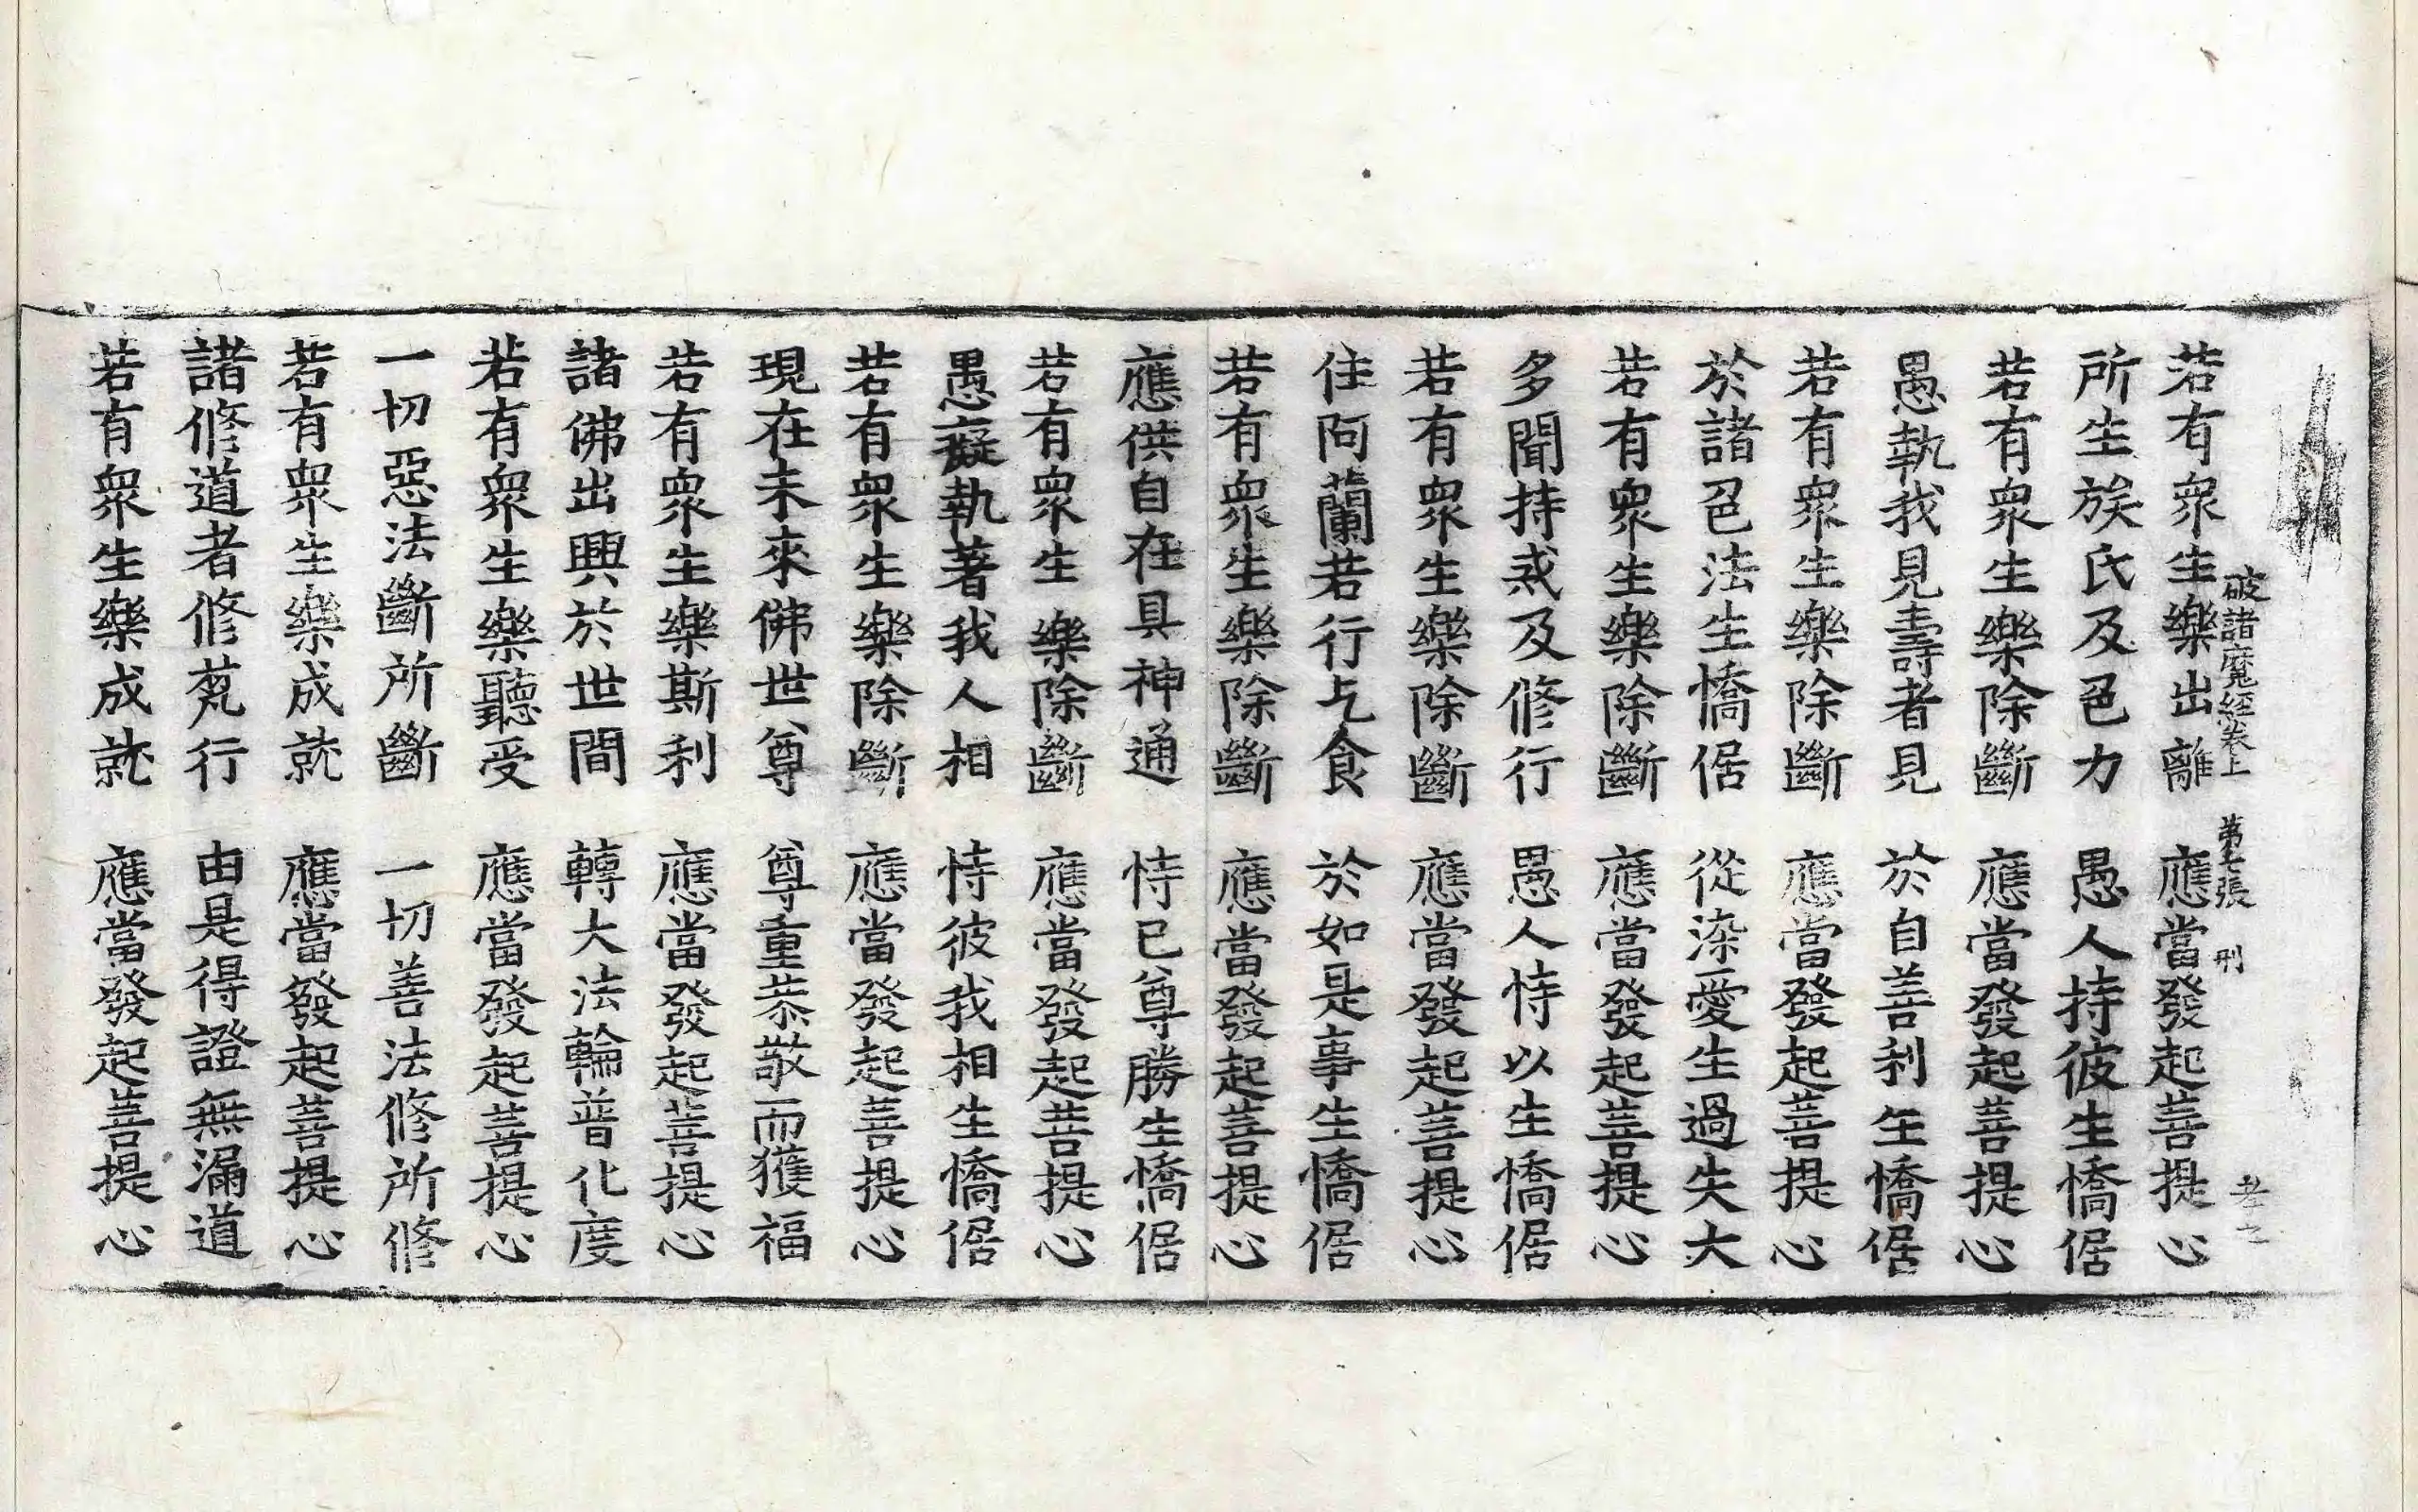 破諸魔經卷上 第七張 刑
若有衆生樂出離 應當發起菩提心
所生族氏及色力 愚人持彼生憍倨
若有衆生樂除斷 應當發起菩提心
愚執我見壽者見 於自善利生憍倨
若有衆生樂除斷 應當發起菩提心
於諸色法生憍倨 從染愛生過失大
若有衆生樂除斷 應當發起菩提心
多聞持戒及修行 愚人恃以生憍倨
若有衆生樂除斷 應當發起菩提心
住阿蘭若行乞食 於如是事生憍倨
若有衆生樂除斷 應當發起菩提心
應供自在具神通 恃已尊勝生憍倨
若有衆生樂除斷 應當發起菩提心
愚癡執著我人相 恃彼我相生憍倨
若有衆生樂除斷 應當發起菩提心
現在未來佛世尊 尊重恭敬而獲福
若有衆生樂斯利 應當發起菩提心
諸佛出興於世間 轉大法輪普化度
若有衆生樂聽受 應當發起菩提心
一切惡法斷所斷 一切善法修所修
若有衆生樂成就 應當發起菩提心
諸修道者修梵行 由是得證無漏道
若有衆生樂成就 應當發起菩提心